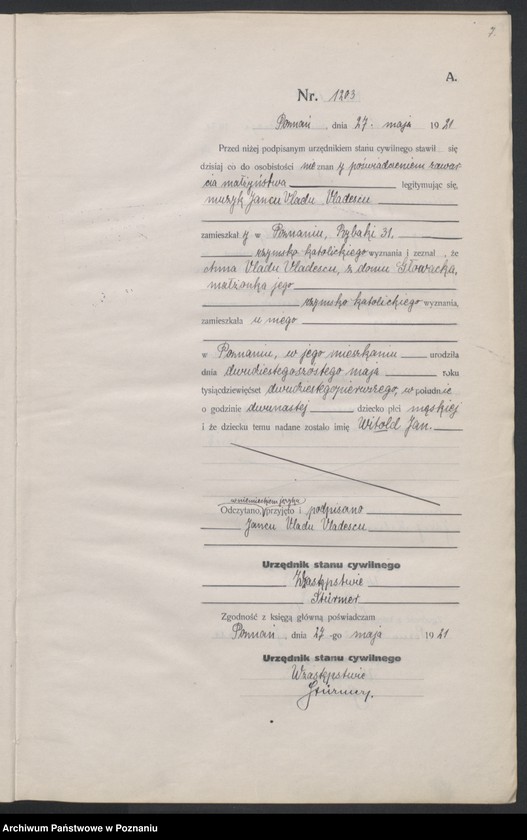 7.
A.
Nr. 1203
Poznań, dnia 27. maja 1921
Przed niżej podpisanym urzędnikiem stanu cywilnego stawił się
dzisiaj co do osobistości nieznany poświadczeniem zawar
cia małżeństwa legitymując się,
muzyk Jancu Vladu Vladescu
zamieszkały w Poznaniu, Rybaki 31.
rzymsko katolickiego wyznania i zeznał, że
Anna Vladu Vladescu, z domu Głowacka,
małżonka jego
rzymsko katolickiego wyznania,
zamieszkała u niego
w Poznaniu, w jego mieszkaniu urodziła
dnia dwudziestegoszóstego maja roku
tysiącdziewięćset dwudziestegopierwszego, w południe
o godzinie dwunastej dziecko płci męskiej
i że dziecku temu nadane zostało imię Witold Jan.
w niemieckiem języku
Odczytano, przyjęto i podpisano
Jancu Vladu Vladescu
Urzędnik stanu cywilnego
W zastępstwie
Stürmer
Zgodność z księgą główną poświadczam
Poznań, dnia 27-go maja 1921
Urzędnik stanu cywilnego
W zastępstwie
Stürmer.
Archiwum Państwowe w Poznaniu